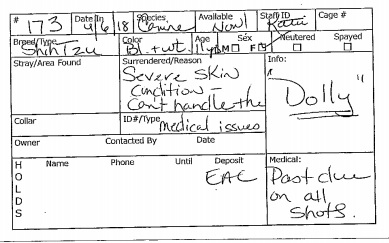 # 173 Date In 4/6/18 Species Canine Available Now! Staff ID Katii Cage #
Breed/Type Shih Tzu Color Bl. + wt. Age 11yrs Sex M☐ F☑ Neutered ☐ Spayed ☐
Stray/Area Found
Surrendered/Reason
Severe Skin
Condition -
Can't handle the
Info:
"Dolly"
Collar
ID#/Type Medical issues
Owner Contacted By Date
HOLDS
Name Phone Until Deposit
EAC
Medical:
Past due
on all
Shots.